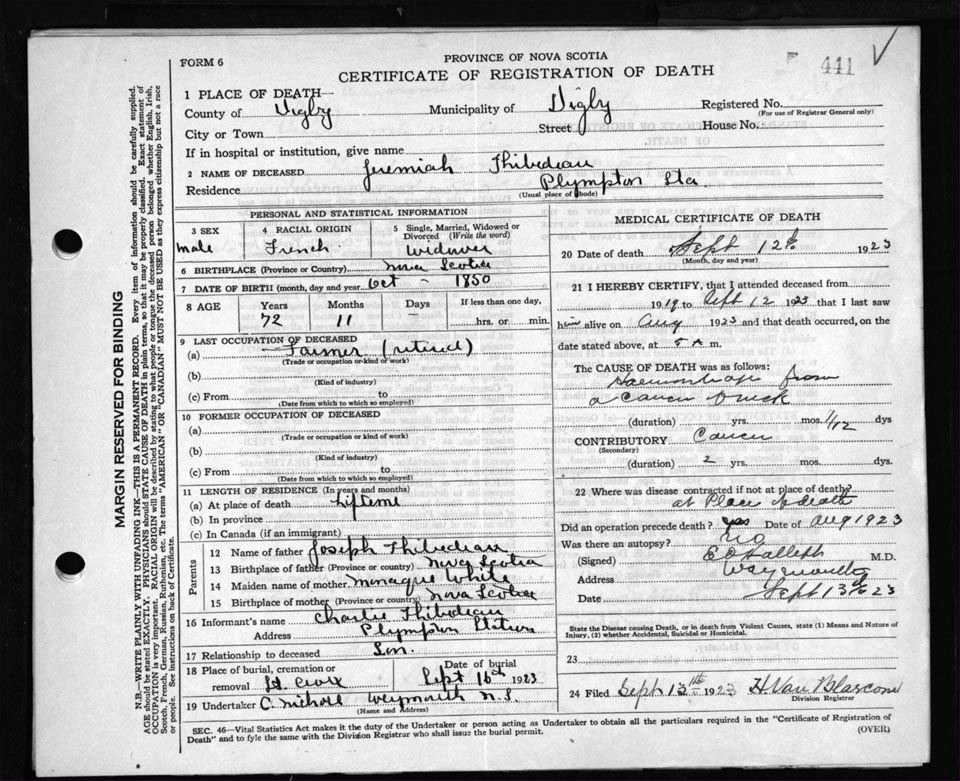 FORM 6
PROVINCE OF NOVA SCOTIA
CERTIFICATE OF REGISTRATION OF DEATH
441
1 PLACE OF DEATH—
County of Digby Municipality of Digby Registered No.
(For use of Registrar General only)
City or Town Street House No.
If in hospital or institution, give name
2 NAME OF DECEASED Jeremiah Thibedeau
Residence Plympton Sta.
(Usual place of abode)
PERSONAL AND STATISTICAL INFORMATION
3 SEX 4 RACIAL ORIGIN 5 Single, Married, Widowed or Divorced (Write the word)
male French Widower
6 BIRTHPLACE (Province or Country) Nova Scotia
7 DATE OF BIRTH (month, day and year) Oct – 1850
8 AGE Years Months Days If less than one day,
72 11 – hrs. or min.
9 LAST OCCUPATION OF DECEASED
(a) Farmer (retired)
(Trade or occupation or kind of work)
(b)
(Kind of industry)
(c) From to
(Date from which to which so employed)
10 FORMER OCCUPATION OF DECEASED
(a)
(Trade or occupation or kind of work)
(b)
(Kind of industry)
(c) From to
(Date from which to which so employed)
11 LENGTH OF RESIDENCE (In years and months)
(a) At place of death Lifetime
(b) In province
(c) In Canada (if an immigrant)
Parents
12 Name of father Joseph Thibedeau
13 Birthplace of father (Province or country) Nova Scotia
14 Maiden name of mother White
15 Birthplace of mother (Province or country) Nova Scotia
16 Informant's name Charlie Thibedeau
Address Plympton Station
17 Relationship to deceased Son.
18 Place of burial, cremation or removal St. Croix Date of burial Sept 16th 1923
19 Undertaker C. Nichols Weymouth N.S.
(Name and Address)
MEDICAL CERTIFICATE OF DEATH
20 Date of death Sept 12th 1923
(Month, day and year)
21 I HEREBY CERTIFY, that I attended deceased from
1919 to Sept 12 1923 that I last saw
him alive on Aug 1923 and that death occurred, on
date stated above, at 5 A m.
The CAUSE OF DEATH was as follows:
Haemorrhage from
a Cancer
(duration) yrs. mos. 1/12 dys
CONTRIBUTORY Cancer
(Secondary)
(duration) 2 yrs. mos. dys.
22 Where was disease contracted if not at place of death?
at Place of death
Did an operation precede death? yes Date of Aug 1923
Was there an autopsy? No
(Signed) M.D.
Address Weymouth
Date Sept 13th 23
State the Disease causing Death, or in death from Violent Causes, state (1) Means and Nature of
Injury, (2) whether Accidental, Suicidal or Homicidal.
23
24 Filed Sept 13th 1923 H. Van Blarcom
Division Registrar
SEC. 46—Vital Statistics Act makes it the duty of the Undertaker or person acting as Undertaker to obtain all the particulars required in the "Certificate of Registration of
Death" and to fyle the same with the Division Registrar who shall issue the burial permit. (OVER)
MARGIN RESERVED FOR BINDING
N.B.—WRITE PLAINLY WITH UNFADING INK—THIS IS A PERMANENT RECORD. Every item of information should be carefully supplied.
AGE should be stated EXACTLY. PHYSICIANS should STATE CAUSE OF DEATH in plain terms, so that it may be properly classified. Exact statement of
OCCUPATION is very important. RACIAL ORIGIN will be described by stating to what people or tongue the deceased person belonged whether English, Irish,
Scotch, French, German, Russian, Ruthenian, etc. The terms "AMERICAN" OR "CANADIAN" MUST NOT BE USED as they express citizenship but not a race
or people. See instructions on back of Certificate.